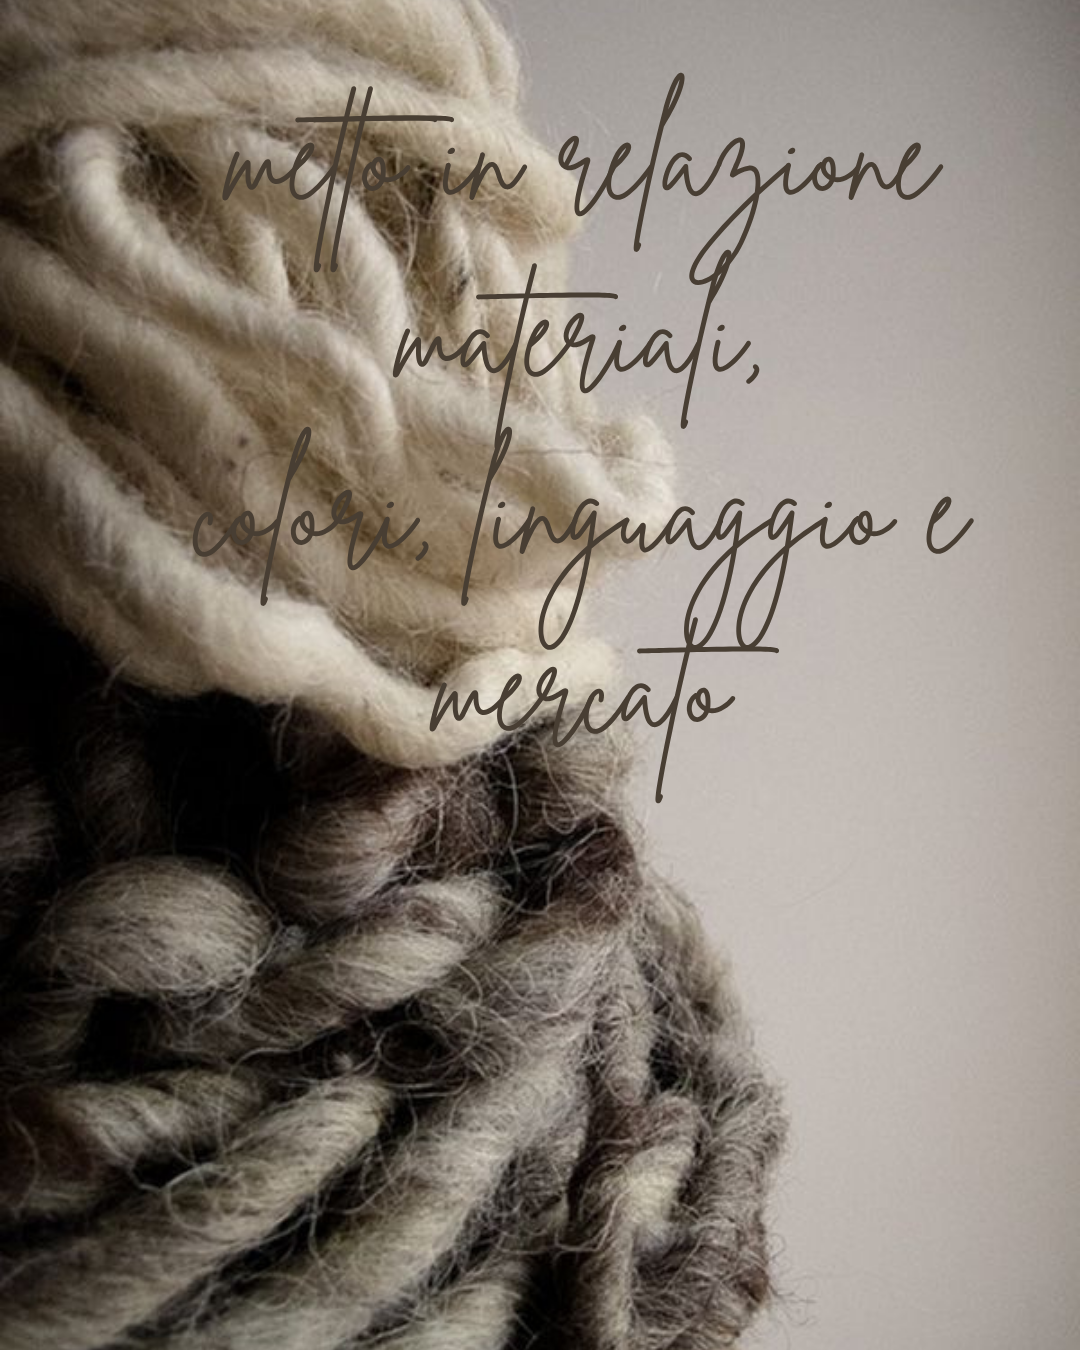 metto in relazione
materiali,
colori, linguaggio e
mercato